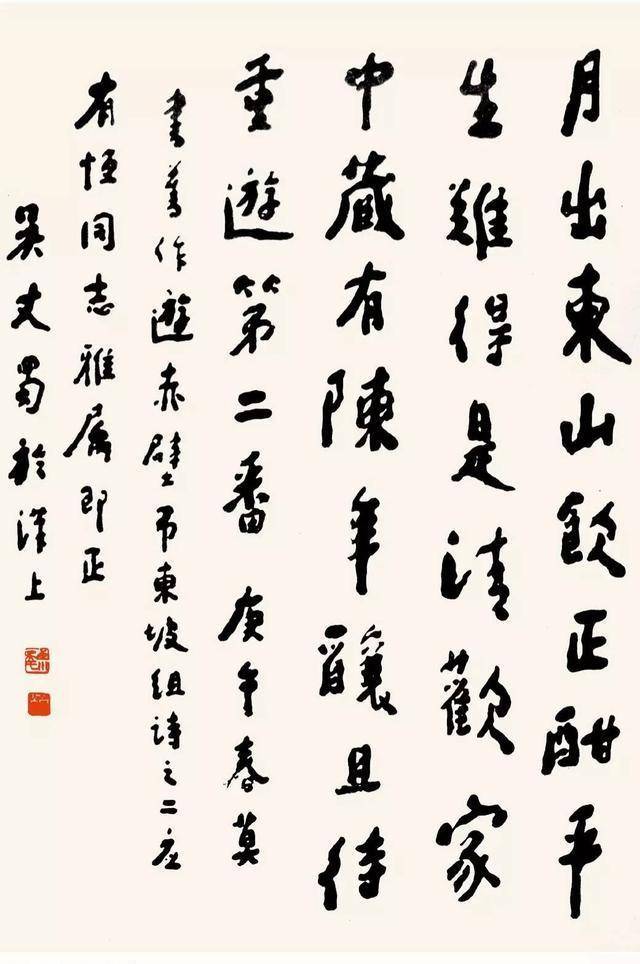 月出東山飲正酣平
生難得是清歡家
中藏有陳年釀且待
重遊第二番 庚午春莫
書舊作遊赤壁吊東坡組詩之二應
有恆同志雅屬即正
吴丈蜀於漢上